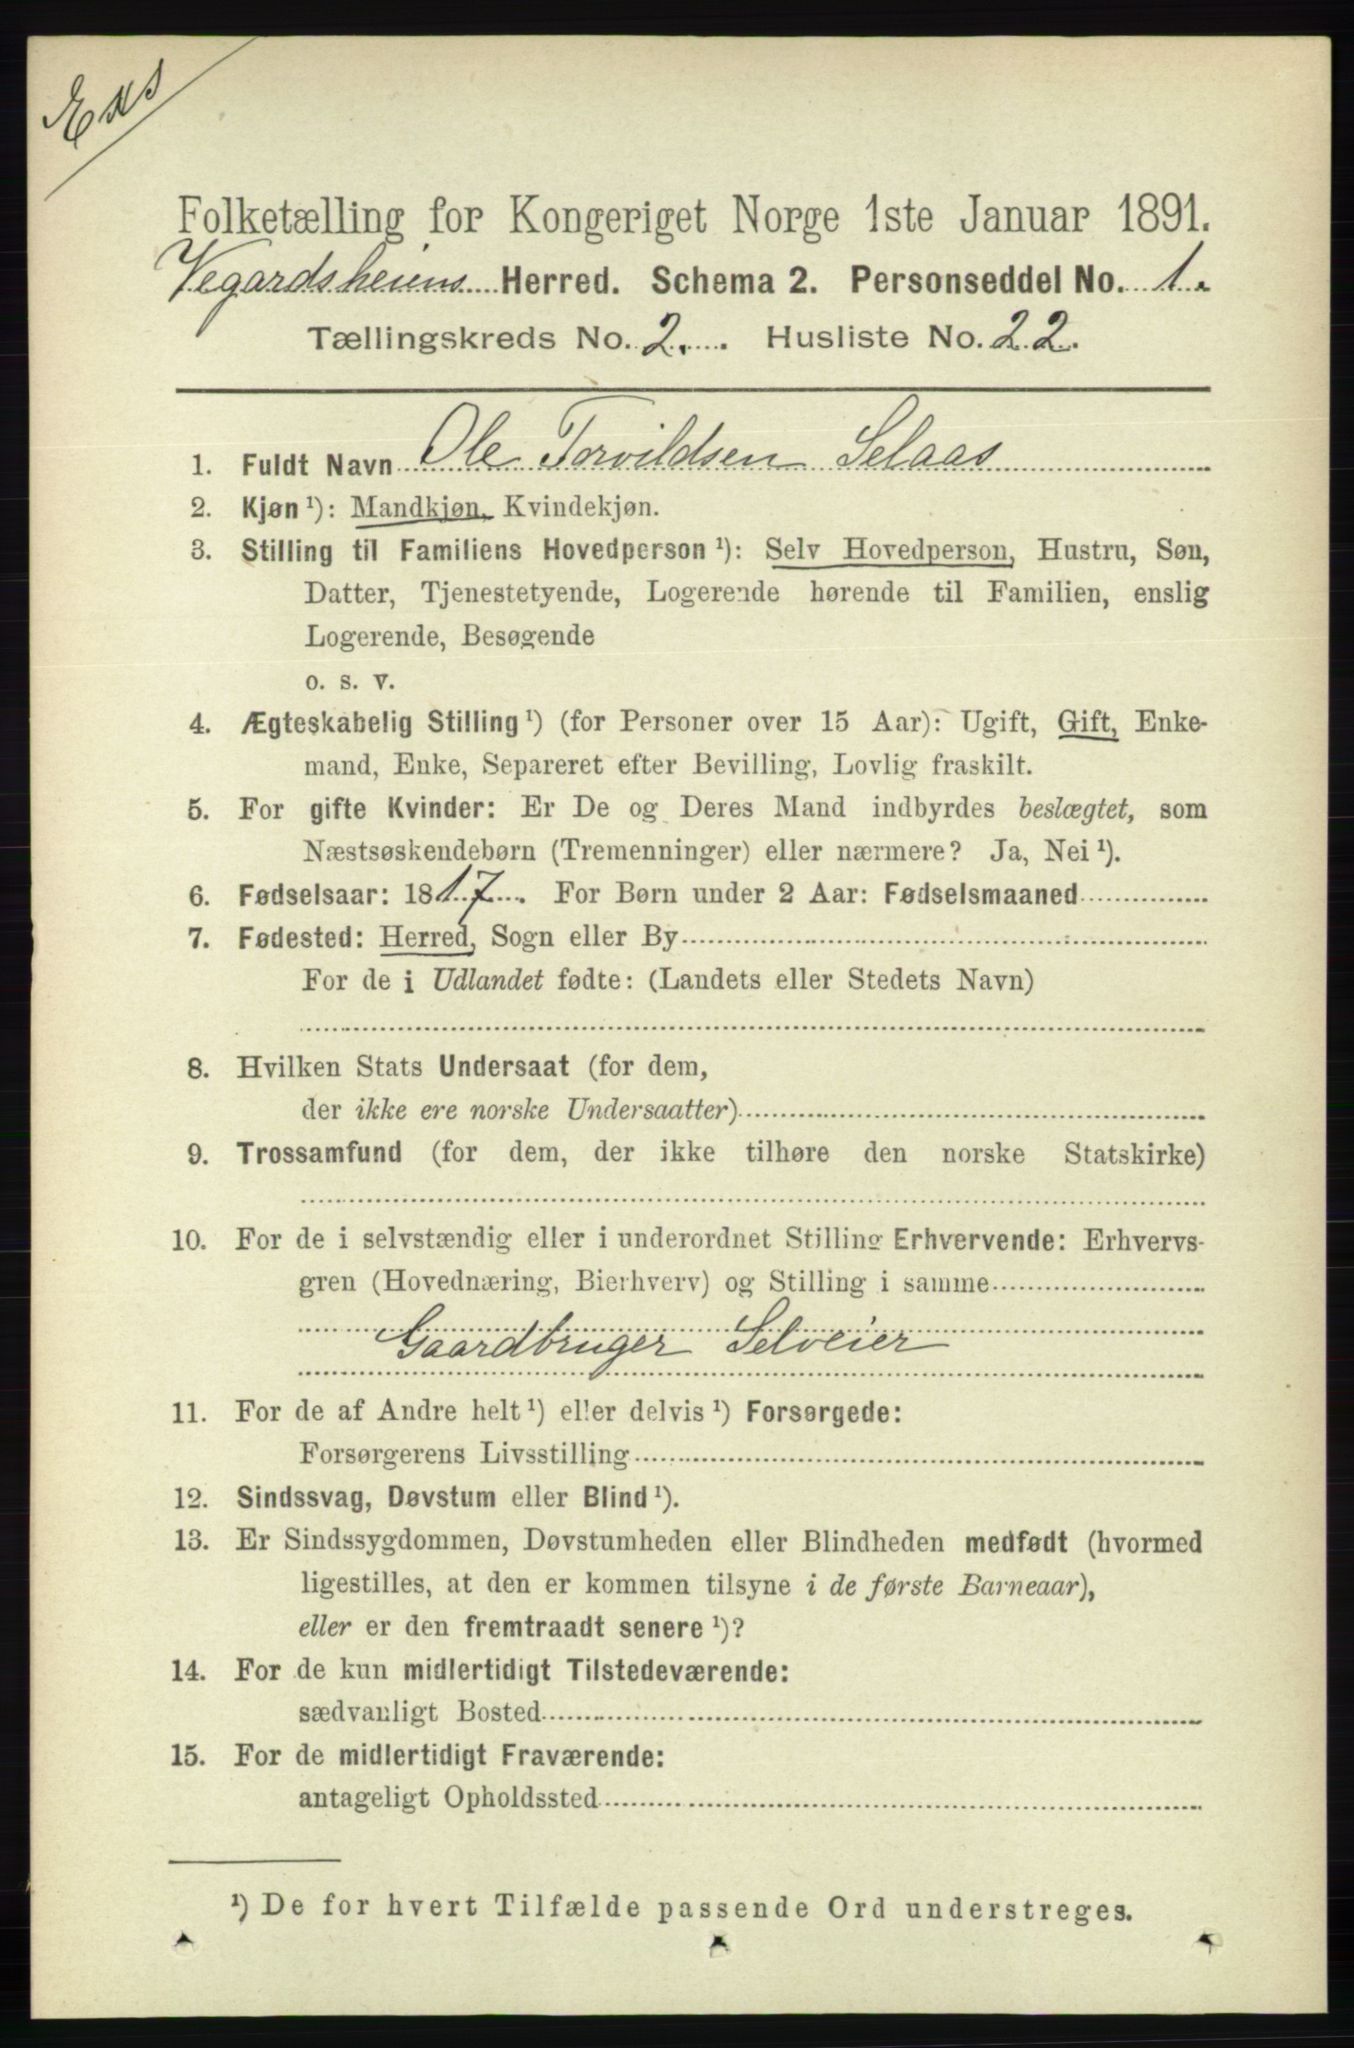 Exs
Folketælling for Kongeriget Norge 1ste Januar 1891.
Vegardsheiens Herred. Schema 2. Personseddel No. 1.
Tællingskreds No. 2. Husliste No. 22.
1. Fuldt Navn Ole Torvildsen Selaas
2. Kjøn ¹): Mandkjøn, Kvindekjøn.
3. Stilling til Familiens Hovedperson ¹): Selv Hovedperson, Hustru, Søn,
Datter, Tjenestetyende, Logerende hørende til Familien, enslig
Logerende, Besøgende
o. s. v.
4. Ægteskabelig Stilling ¹) (for Personer over 15 Aar): Ugift, Gift, Enke-
mand, Enke, Separeret efter Bevilling, Lovlig fraskilt.
5. For gifte Kvinder: Er De og Deres Mand indbyrdes beslægtet, som
Næstsøskendebørn (Tremenninger) eller nærmere? Ja, Nei ¹).
6. Fødselsaar: 1817. For Børn under 2 Aar: Fødselsmaaned
7. Fødested: Herred, Sogn eller By
For de i Udlandet fødte: (Landets eller Stedets Navn)
8. Hvilken Stats Undersaat (for dem,
der ikke ere norske Undersaatter)
9. Trossamfund (for dem, der ikke tilhøre den norske Statskirke)
10. For de i selvstændig eller i underordnet Stilling Erhvervende: Erhvervs-
gren (Hovednæring, Bierhverv) og Stilling i samme
Gaardbruger Selveier
11. For de af Andre helt ¹) eller delvis ¹) Forsørgede:
Forsørgerens Livsstilling
12. Sindssvag, Døvstum eller Blind ¹).
13. Er Sindssygdommen, Døvstumheden eller Blindheden medfødt (hvormed
ligestilles, at den er kommen tilsyne i de første Barneaar),
eller er den fremtraadt senere ¹)?
14. For de kun midlertidigt Tilstedeværende:
sædvanligt Bosted
15. For de midlertidigt Fraværende:
antageligt Opholdssted
¹) De for hvert Tilfælde passende Ord understreges.